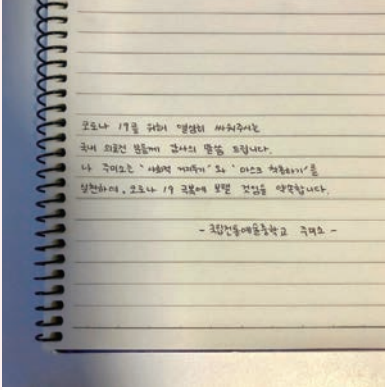 코로나 19를 위해 열심히 싸워주시는
국내 의료진 분들께 감사의 말씀 드립니다.
나 주미소는 '사회적 거리두기'와 '마스크 착용하기'를
실천하며, 코로나 19 극복에 보탤 것임을 약속합니다.
- 국립전통예술중학교 주미소 -